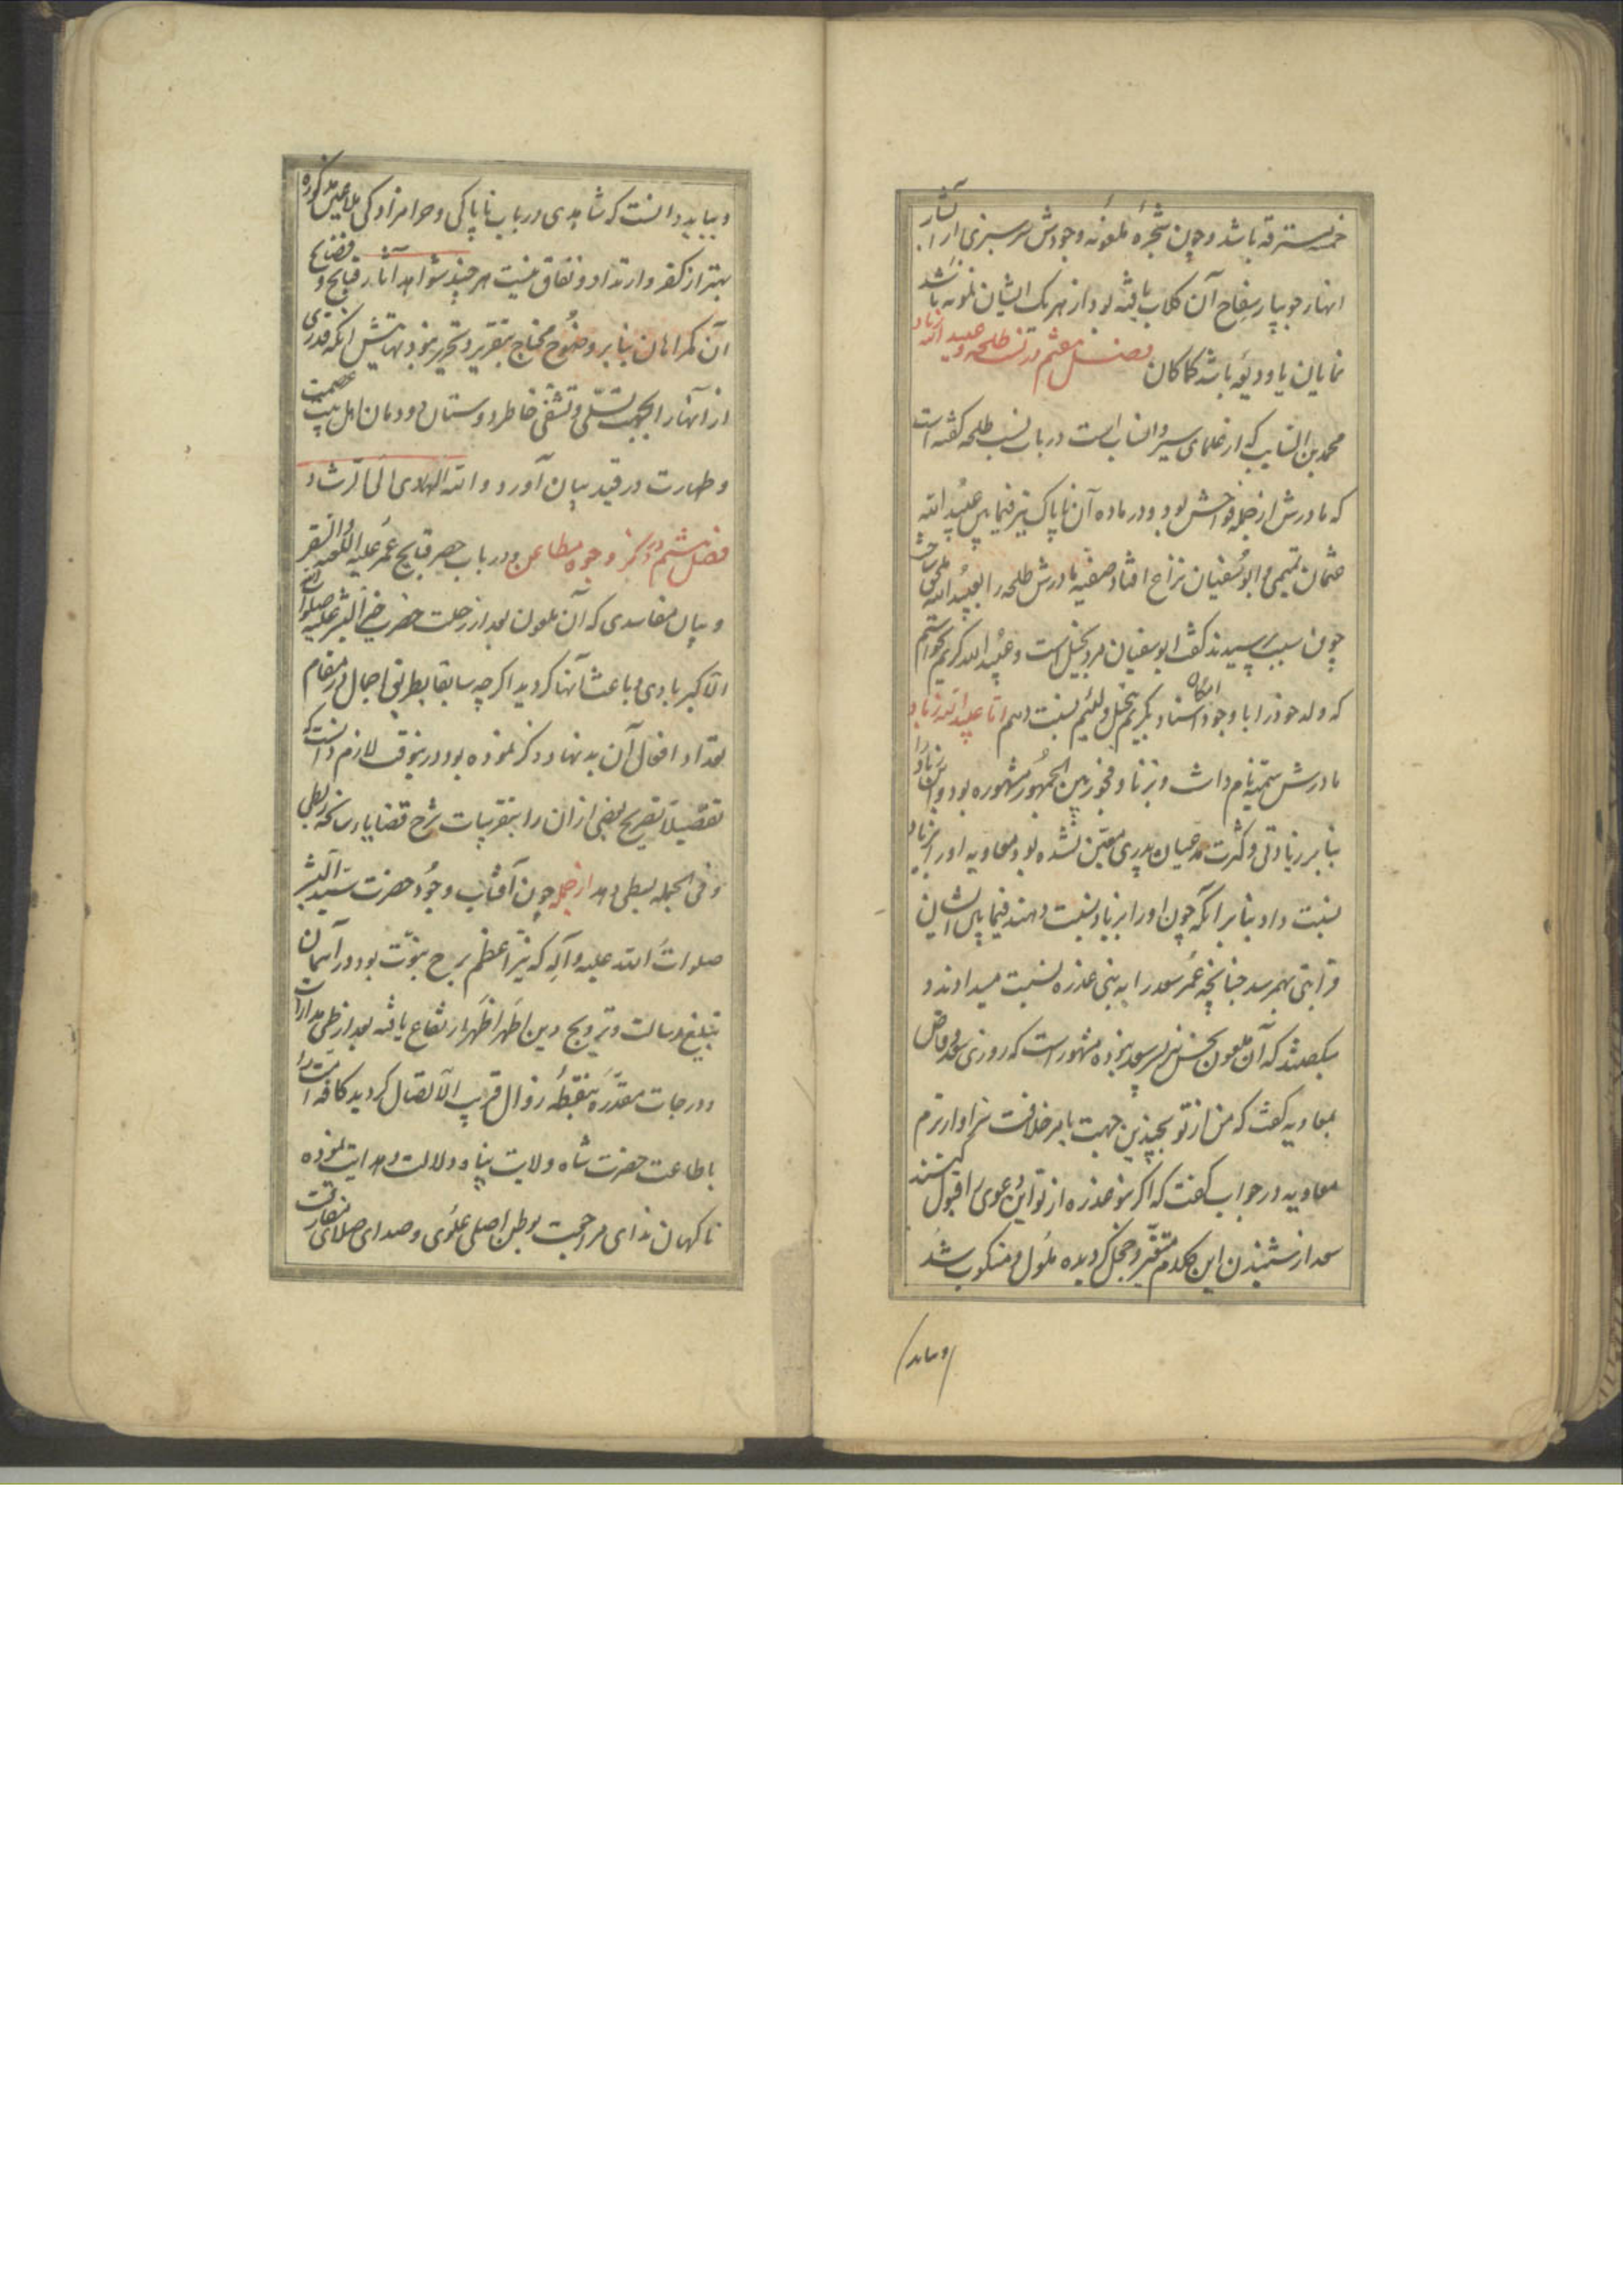 خمسه مسترقه باشد و چون شجره ملعونه وجودش سرسبزی از آبشار
انهار جویبار سفاح آن کلاب یافته بود از هر یک ایشان نمونه باشد
نمایان یا ودیعه باشد کماکان فصل هفتم در نسب طلحه و عبید الله زیاد
محمد بن السایب که از علمای سیر و انساب است در باب نسب طلحه گفته است
که مادرش از جمله فواحش بود و در ماده آن ناپاک نیز فیما بین عبید الله
عثمان تمیمی و ابوسفیان نزاع افتاد صفیه مادرش طلحه را بعبید الله ملحق ساخت
چون سبب پرسیدند گفت ابوسفیان مرد بخیل است و عبید الله کریم نخواستم
که ولد خود را با وجود امکان اسناد بکریم بخیل و لئیم نسبت دهم اما عبید الله زیاد
مادرش سمیه نام داشت و بزنا و فجور بین الجمهور مشهوره بود و ابن زیاد را
بنا بر زیادتی و کثرت مدعیان پدری معین نشده بود معاویه او را بزیاد
نسبت داد بنا بر آنکه چون او را بزیاد نسبت دهند فیما بین ایشان
قرابتی بهمرسد چنانچه عمر سعد را به بنی عذره نسبت میدادند و
میگفتند که آن ملعون نجس نیز پسر سعد نبوده مشهور است که روزی سعد وقاص
بمعاویه گفت که من از تو بچندین جهت بامر خلافت سزاوارترم
معاویه در جواب گفت که اگر بنو عذره از تو این دعوی را قبول کنند
سعد از شنیدن این کلام متغیر و خجل گردیده ملول و منکوب شد
وبباید
و بباید دانست که شاهدی در باب ناپاکی و حرامزادگی ملاعین مذکوره
بهتر از کفر و ارتداد و نفاق نیست هر چند شواهد آثار قبایح و فضایح
آن گمراهان بنا بر وضوح محتاج بتقریر و تحریر نبود نهایتش آنکه قدری
از آنها را بجهت تسلی و تشفی خاطر دوستان دودمان اهل بیت عصمت
و طهارت در قید بیان آورد و الله الهادی الی الرشاد
فصل هشتم در ذکر وجوه مطاعن و در باب حصر قبایح عمر علیه اللعنه و السقر
و بیان مفاسدی که آن ملعون بعد از رحلت حضرت خیر البشر علیه صلوات الله
الاکبر بادی و باعث آنها گردید اگر چه سابقا بطریق اجمال در مقام
تعداد افعال آن بدنهاد ذکر نموده بود درینوقت لازم دانست که
تفصیلا تصریح بعضی از آن را بتقریبات شرح قضایاء سانحه ربطی
و فی الجمله بسطی دهد از جمله چون آفتاب وجود حضرت سید البشر
صلوات الله علیه و آله که نیر اعظم برج نبوت بود در آسمان
تبلیغ رسالت و ترویج دین اطهر اظهر ارتفاع یافته بعد از طی مدارات
و درجات مقدره بنقطه زوال قریب الاتصال گردید کافه امت را
باطاعت حضرت شاه ولایت پناه دلالت و هدایت نموده
ناگهان ندای مراجعت بوطن اصلی علوی و صدای صلای مفارقت